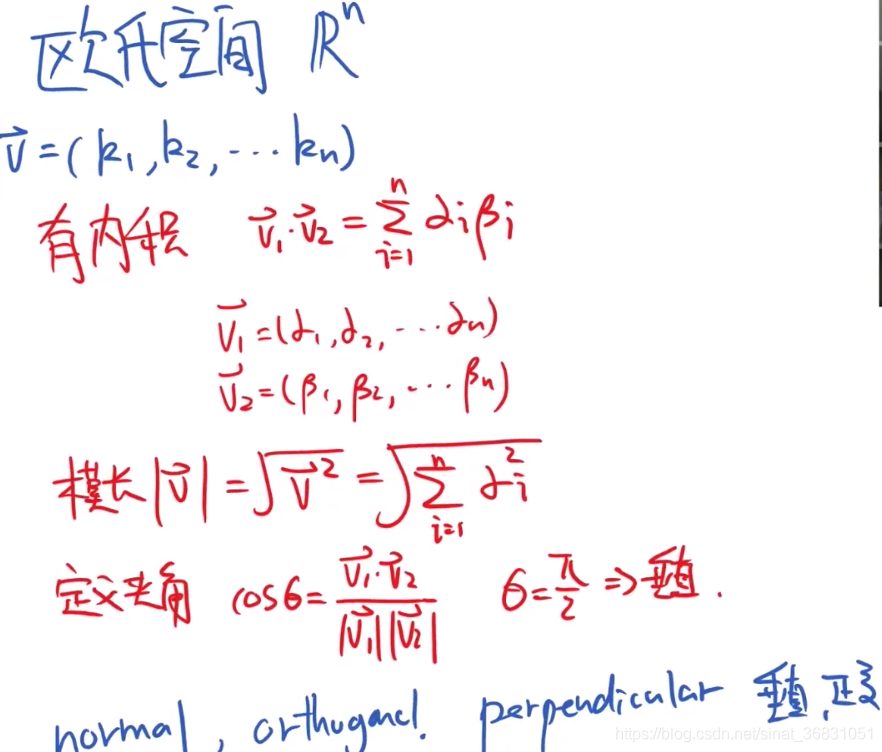 欧氏空间 ℝⁿ
v⃗=(k₁,k₂,⋯kₙ)
有内积 v⃗₁·v⃗₂=∑ⁿᵢ₌₁ αᵢβᵢ
v⃗₁=(α₁,α₂,⋯αₙ)
v⃗₂=(β₁,β₂,⋯βₙ)
模长|v⃗|=√(v⃗²)=√(∑ⁿᵢ₌₁ αᵢ²)
定义夹角 cosθ=(v⃗₁·v⃗₂)/(|v⃗₁||v⃗₂|) θ=π/2 ⇒垂直.
normal, orthogonal. perpendicular 垂直,正交
https://blog.csdn.net/sinat_36831051